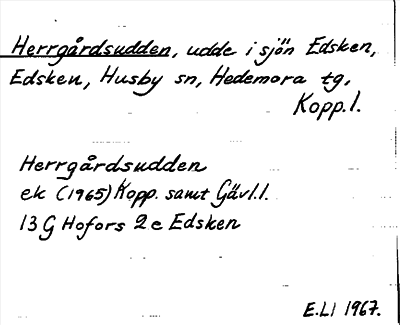 Herrgårdsudden, udde i sjön Edsken,
Edsken, Husby sn, Hedemora tg,
Kopp. l.
Herrgårdsudden
ek (1965) Kopp. samt Gävl. l.
13 G Hofors 2 e Edsken
E. LI 1967.